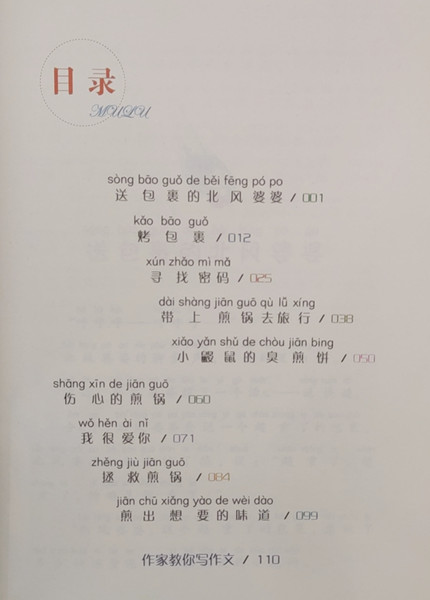 目录
MULU
sòng bāo guǒ de běi fēng pó po
送包裹的北风婆婆 / 001
kǎo bāo guǒ
烤包裹 / 012
xún zhǎo mì mǎ
寻找密码 / 025
dài shàng jiān guō qù lǚ xíng
带上煎锅去旅行 / 038
xiǎo yǎn shǔ de chòu jiān bing
小鼹鼠的臭煎饼 / 050
shāng xīn de jiān guō
伤心的煎锅 / 060
wǒ hěn ài nǐ
我很爱你 / 071
zhěng jiù jiān guō
拯救煎锅 / 084
jiān chū xiǎng yào de wèi dào
煎出想要的味道 / 099
作家教你写作文 / 110